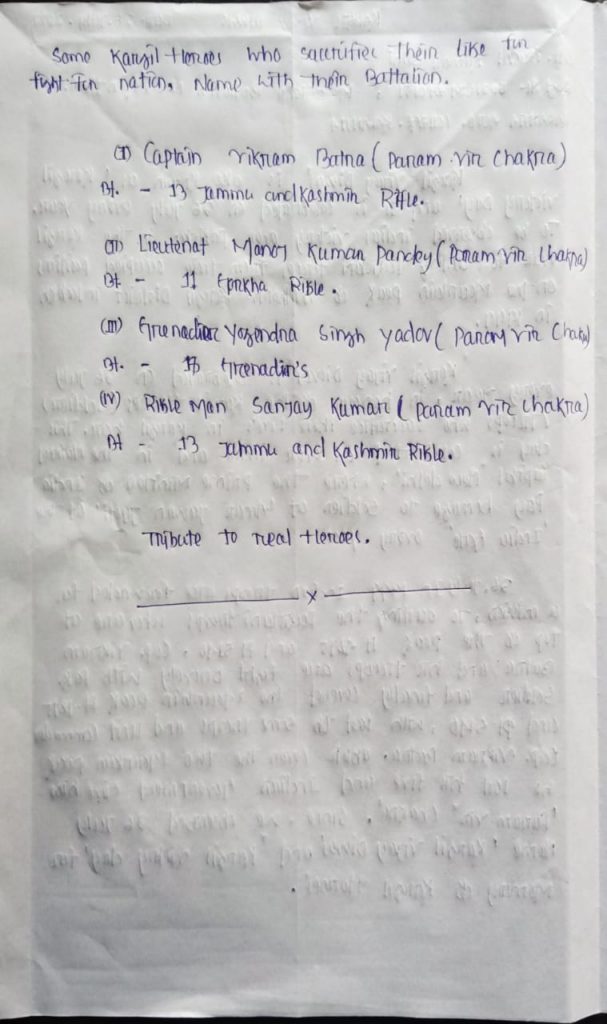 Some Kargil Heroes who sacrifice their life for
fight for nation, Name with their Battalion.
(I) Captain Vikram Batra (Param Vir Chakra)
Bt. - 13 Jammu and Kashmir Rifle.
(II) Lieutenat Manoj Kumar Pandey (Param Vir Chakra)
Bt - 11 Gorkha Rifle.
(III) Grenadier Yogendra Singh Yadov (Param Vir Chakra)
Bt. - Grenadier's
(IV) Rifle Man Sanjay Kumar (Param Vir Chakra)
Bt - 13 Jammu and Kashmir Rifle.
Tribute to real Heroes.
x